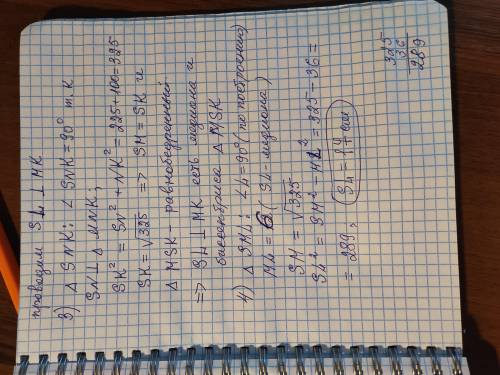 проводим SL ⊥ MK
3) △ SNK; ∠ SNK = 90° т.к
SN ⊥ △ MNK;
SK² = SN² + NK² = 225 + 100 = 325
SK = √325 => SM = SK и
△ MSK - равнобедренный
=> SL ⊥ MK есть медиана и
биссектриса △ MSK
4) △ SML: ∠L = 90° (по построению)
ML = 6 (SL - медиана)
SM = √325
SL² = SM² - ML² = 325 - 36 =
= 289; SL = 17 см
325
36
289